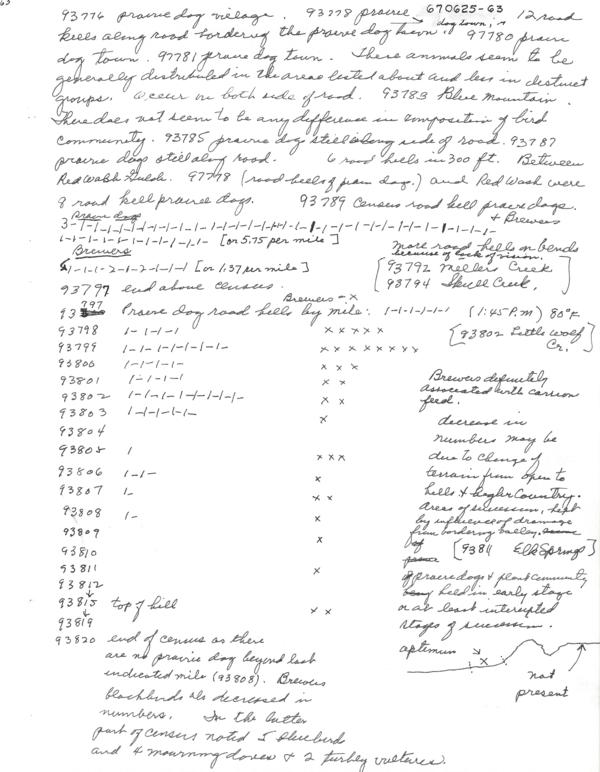 63
93776 prairie dog village. 93778 prairie 670625-63
dog town; 12 road
kills along road bordering the prairie dog town. 97780 prairie
dog town. 97781 prairie dog town. These animals seem to be
generally distributed in the areas listed about and less in distinct
groups. Occur on both side of road. 93783 Blue Mountain.
There does not seem to be any difference in composition of bird
community. 93785 prairie dog still along side of road. 93787
prairie dogs still along road. 6 road kills in 300 ft. Between
Red Wash 97778 (road kills of prairie dog.) and Red Wash were
8 road kill prairie dogs. 93789 Census road kill prairie dogs.
Prairie dogs + Brewers
3-1-1-1-1-1-1-1-1-1-1-1-1-1-1-1-1-1-1-1-1-1-1-1-1-1-1-1
1-1-1-1-1-1-1-1-1-1- [or 5.75 per mile]
Brewers
1-1-1-2-1-2-1-1-1 [or 1.37 per mile]
more road kills on bends
because of lack of vision.
[93792 Nellers Creek
93794 Skull Creek.]
93797 end above census.
Brewers - x
93797 Prairie dog road kills by mile: 1-1-1-1-1-1 (1:45 P.M) 80°F
93798 1-1-1-1 x x x x x
[93802 Little Wolf
Cr.]
93799 1-1-1-1-1-1-1- x x x x x x x x
93800 1-1-1-1- x x x
93801 1-1-1-1 x x
93802 1-1-1-1-1-1-1-1- x x
93803 1-1-1-1-1- x
93804
93805 1 x x x
93806 1-1- x
93807 1- x x
93808 1- x
93809 x
93810
93811 x
93812
93815 top of hill x x
93819
Brewers definitely
associated with carrion
feed.
decrease in
numbers may be
due to change of
terrain from open to
hills & higher country.
Areas of succession, kept
by influence of drainage
from bordering valley.
of [93811 Elk Springs]
of prairie dogs & plant community
being held in early stage
or at least interrupted
stages of succession.
optimum
x
not
present
93820 end of census as there
are no prairie dog beyond last
indicated mile (93808). Brewers
blackbirds also decreased in
numbers. In the latter
part of census noted 5 bluebirds
and 4 mourning doves & 2 turkey vultures.